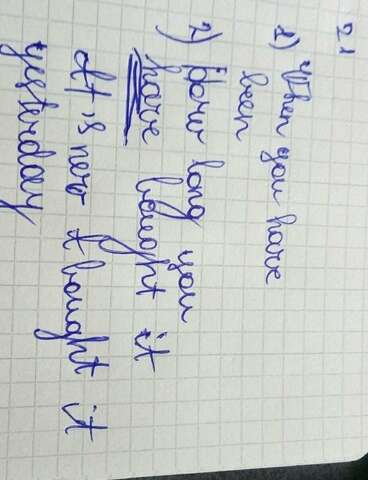 2.1
1) When you have
been
2) How long you
have bought it
It is new I bought it
yesterday